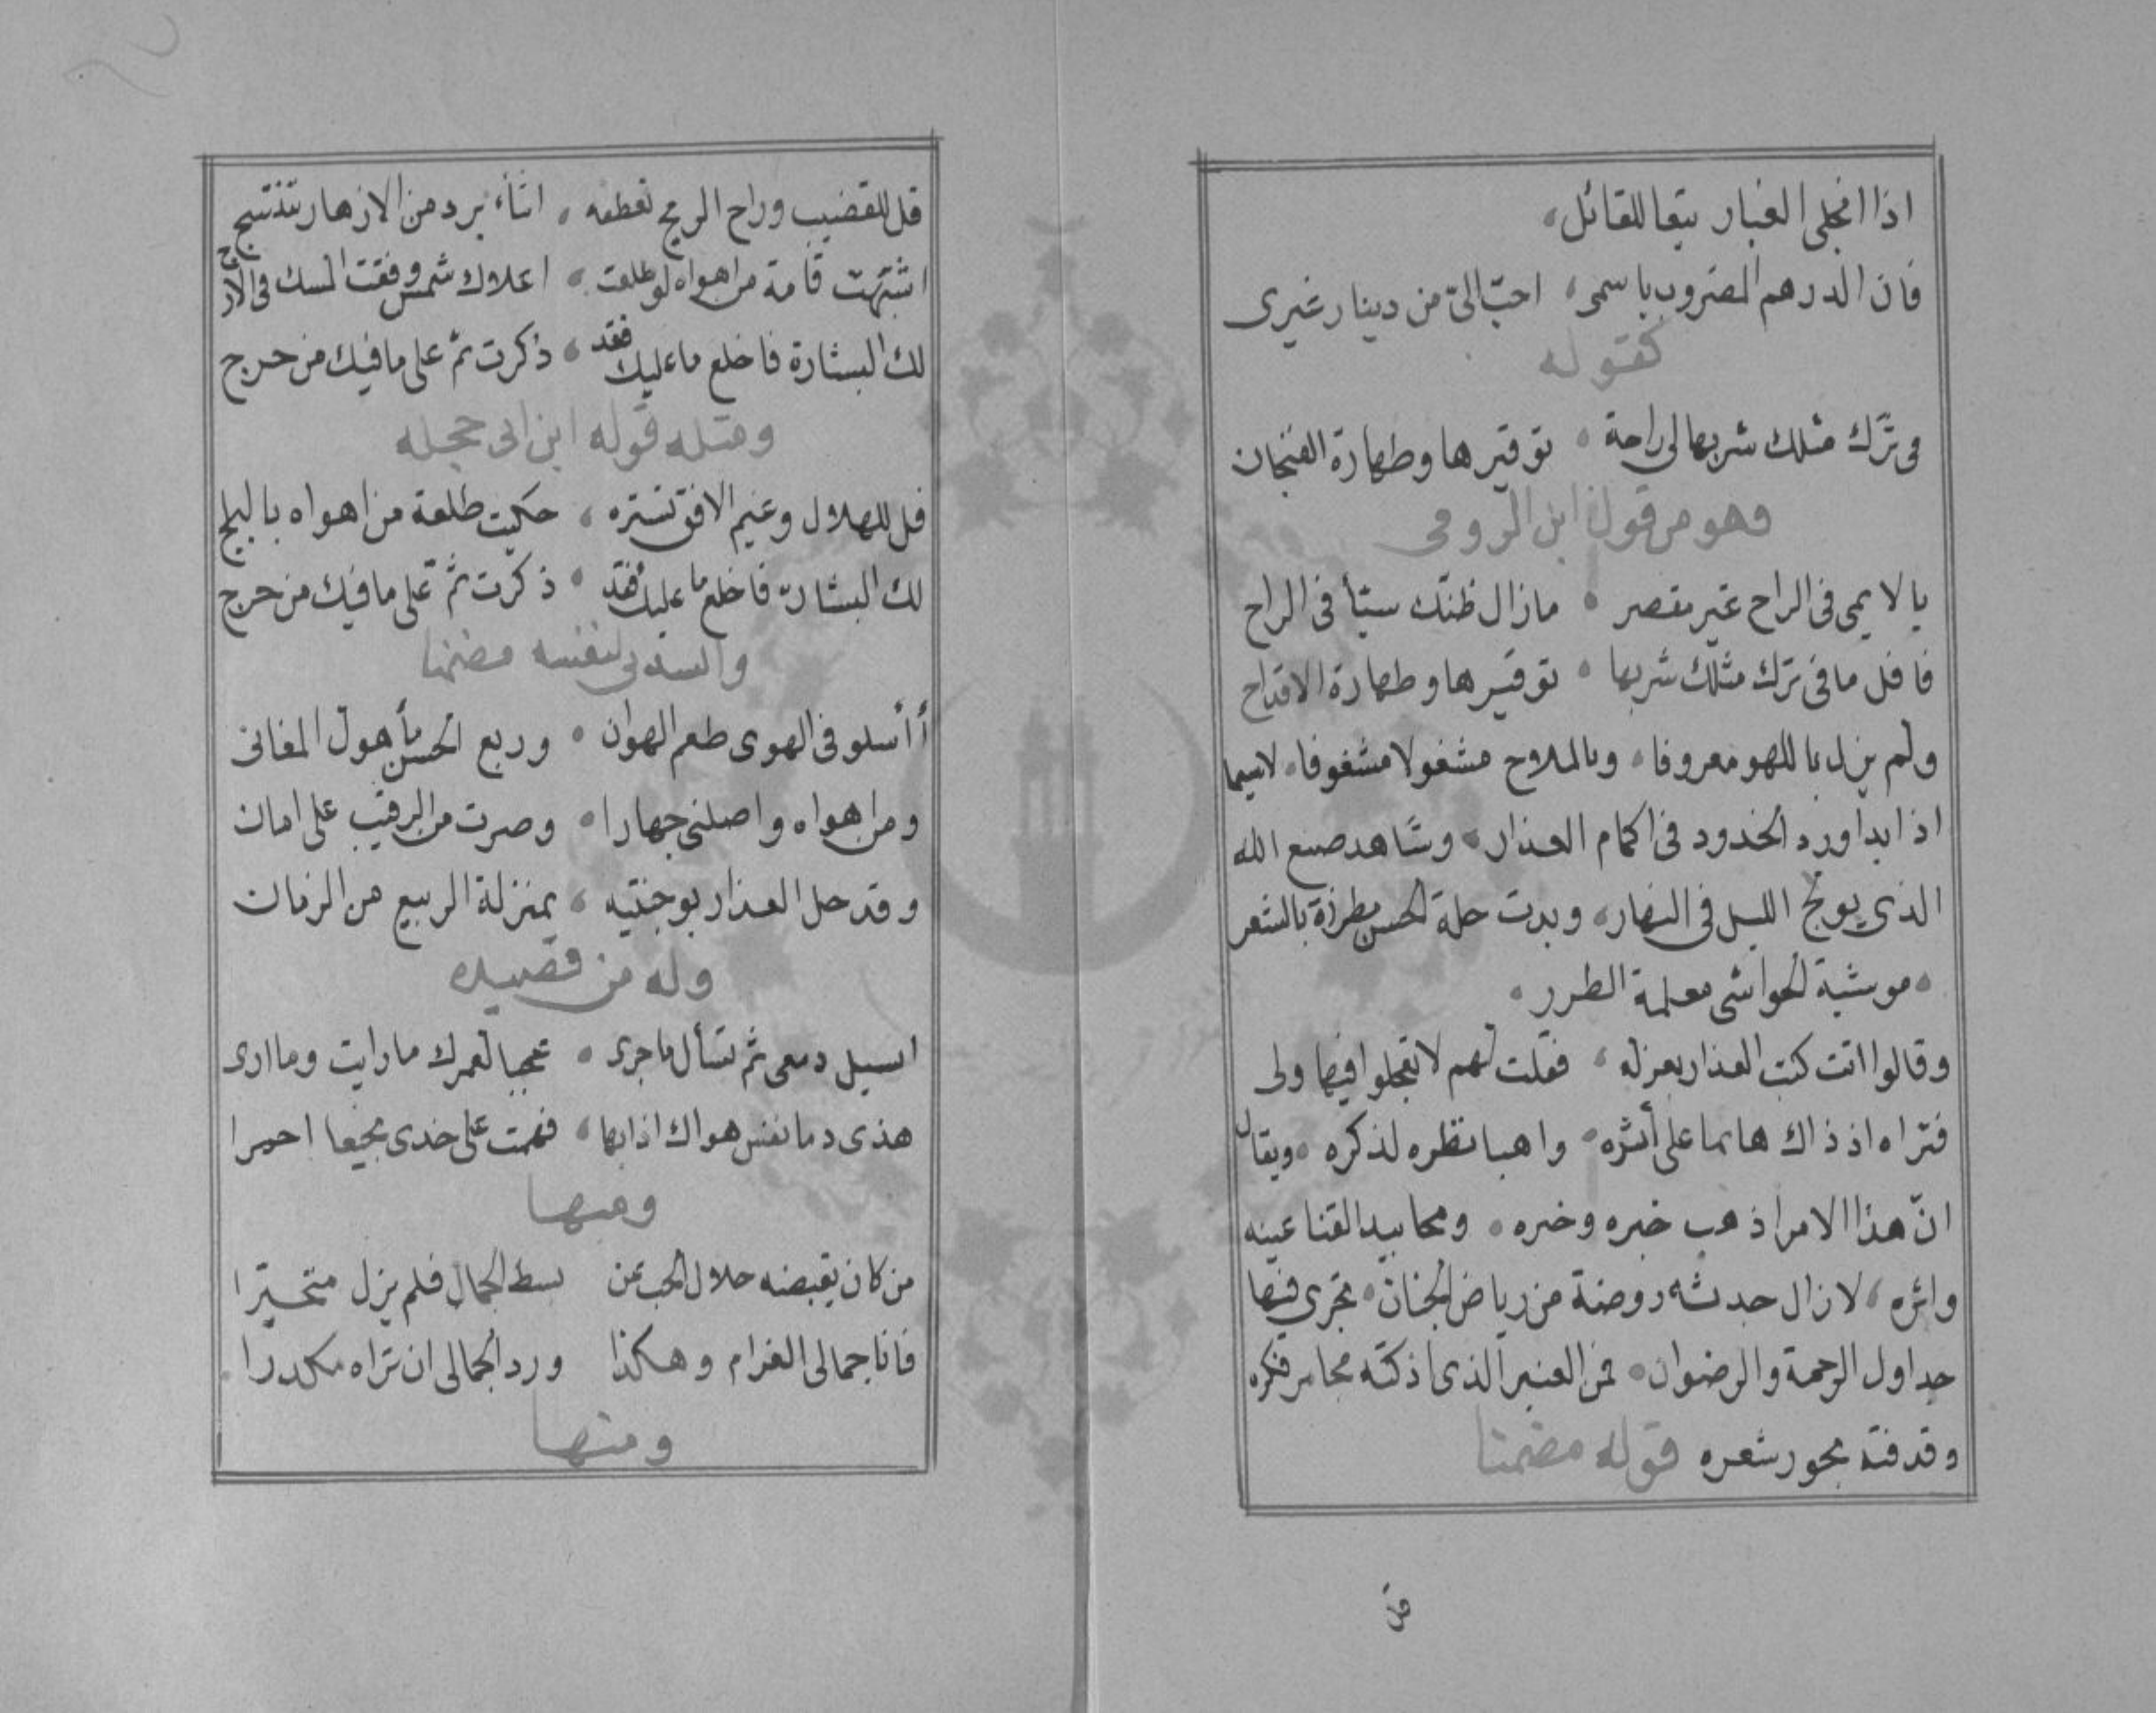 اذا انجلى الغبار يتقا للقائل،
فان الدرهم المضروب باسمى، احبّ الىّ من دينار غيرى
كقوله
فى ترك مثلك شربها لى راحة ، توقيرها وطهارة الفنجان
وهو من قول ابن الرومى
يا لايمى فى الراح غير مقصر ، مازال ظنّك سيئا فى الراح
فاقل ما فى ترك مثلك شربها ، توقيرها وطهارة الاقداح
ولم يزل باللهو معروفا، وبالملاح مشغولا مشغوفا، لاسيما
اذا بدا ورد الخدود فى اكمام العذار، وشاهد صنع الله
الذى يولج الليل فى النهار، وبدت حلة الحسن مطرزة بالشعر
، موشية الحواشى معلمة الطرر ،
وقالوا اتت كتب العذار بعزله ، فقلت لهم لا تعجلوا فيها ولى
فتراه اذ ذاك هايما على أثره، واهبا نظره لذكره ، ويقال
انّ هذا الامر اذهب خبره وخبره ، ومحا بيد القنا عينه
واثره، لازال حدثه روضة من رياض الجنان، تجرى فيها
جداول الرحمة والرضوان، فمن العنبر الذى اذكته مجامر فكره
وقدفته بحور شعره قوله مضمنا
قل
قل للقضيب وراح الريح تعطفه ، اثناء برد من الازهار تنتسج
اشبهت قامة من اهواه لو طلعت ، اعلاك شمس وفقت المسك فى الارج
لك البشارة فاخلع ما عليك فقد ، ذكرت ثمّ على ما فيك من حرج
ومثله قوله ابن ابى حجله
قل للهلال وغيم الافق تستره ، حكيت طلعة من اهواه بالبلج
لك البشارة فاخلع ما عليك فقد ، ذكرت ثمّ على ما فيك من حرج
لنفسه مضمنا
أأسلو فى الهوى طعم الهوان ، وربع الحسن مأهول المغانى
ومن اهواه واصلنى جهارا ، وصرت من الرقيب على امان
وقد حل العذار بوجنتيه ، بمنزلة الربيع من الزمان
وله من قصيده
اسيل دمعى ثم تسأل ما جرى ، عجبا لعمرك ما رايت وما ارى
هذى دما نفس هواك اذابها ، فهمت على خدى نجيعا احمرا
ومنها
من كان يقبضه جلال الحب عن بسط الجمال فلم يزل متحيّرا
فانا جمالى الغرام وهكذا ورد الجمالى ان تراه مكدرا
ومنها